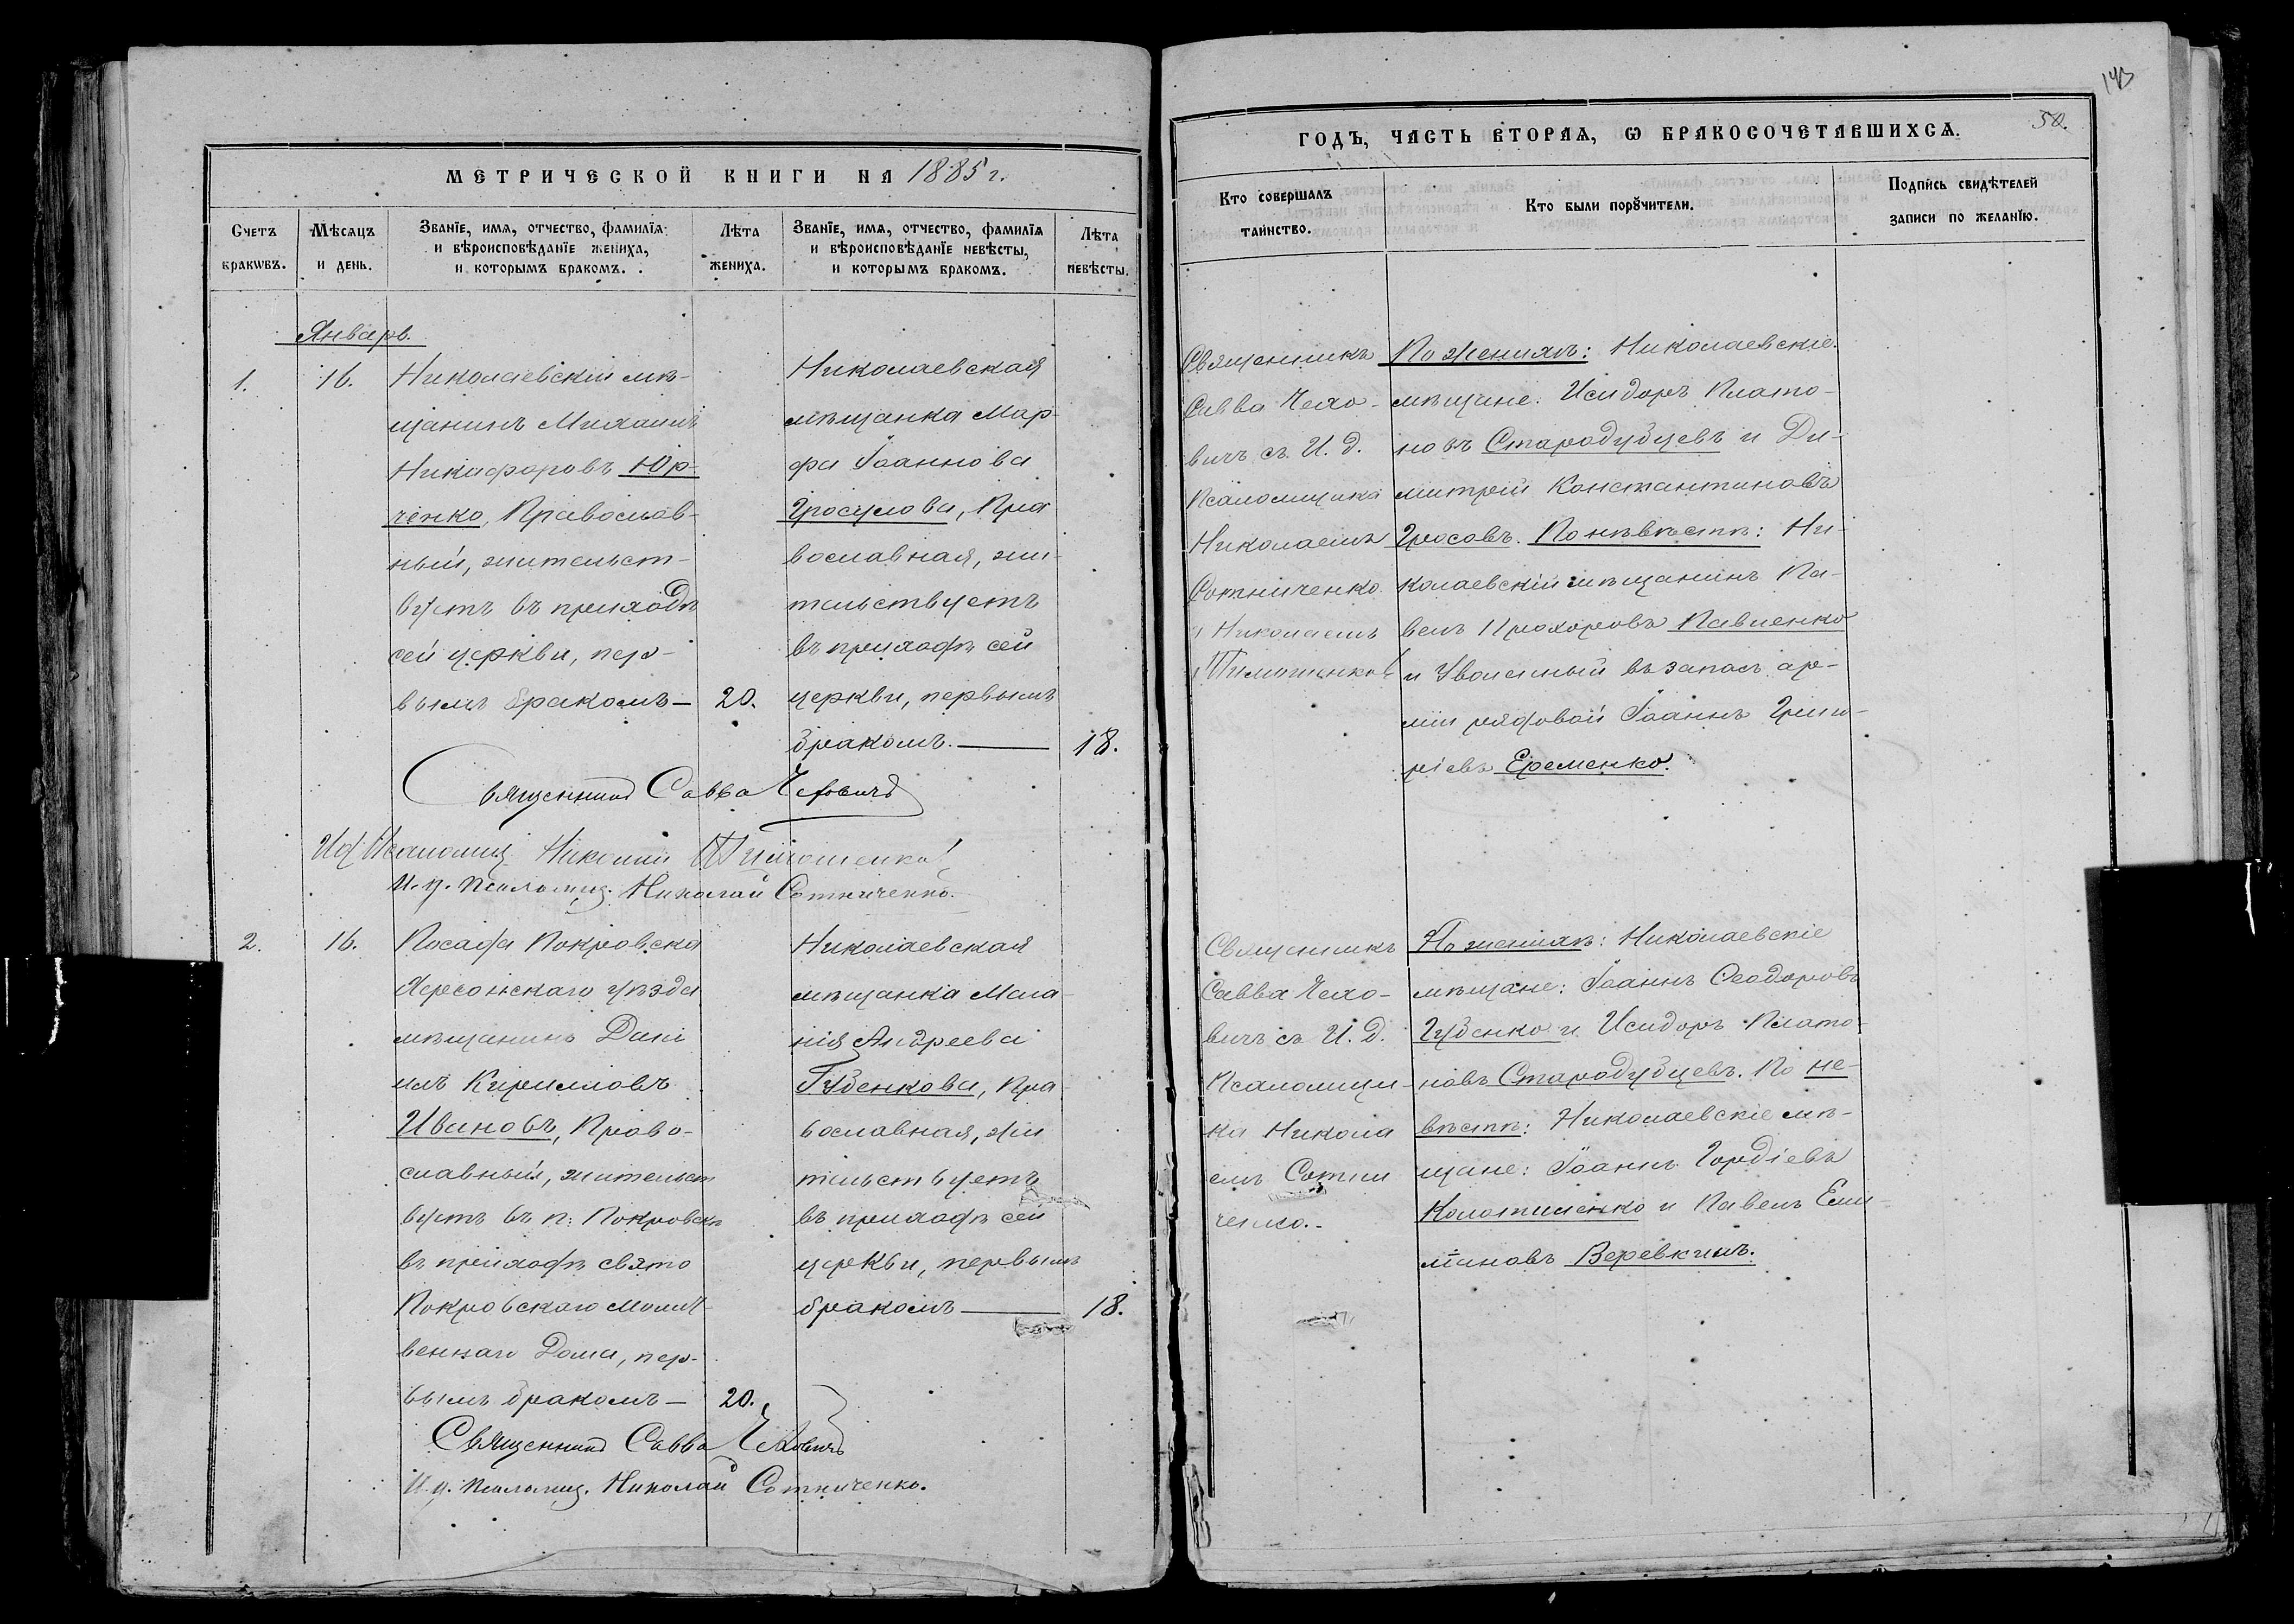 МЕТРИЧЕСКОЙ КНИГИ НА 1885 г.
Счетъ браковъ.
Мѣсяцъ и день.
Званіе, имя, отчество, фамилія и вѣроисповѣданіе жениха, и которымъ бракомъ.
Лѣта жениха.
Званіе, имя, отчество, фамилія и вѣроисповѣданіе невѣсты, и которымъ бракомъ.
Лѣта невѣсты.
Январь.
1.
16.
Николаевскій мѣ-
щанинъ Михаилъ
Никифоровъ Юр-
ченко, Православ-
ный, жительст-
вуетъ въ приходѣ
сей церкви, пер-
вымъ бракомъ —
20.
Николаевская
мѣщанка Мар-
фа Іоаннова
Гросулова, Пра
вославная, жи-
тельствуетъ
въ приходѣ сей
церкви, первымъ
бракомъ. —
18.
Священникъ Савва Чехович
Псаломщ. Николай Тимошенко
И. д. Псаломщ. Николай Сотниченко.
2.
16.
Посада Покровска
Херсонскаго уѣзда
мѣщанинъ Дані
илъ Кирилловъ
Ивановъ, Право-
славный, жительст
вуетъ въ п: Покровскѣ
въ приходѣ свято
Покровскаго Молит
веннаго Дома, пер-
вымъ бракомъ —
20.
Николаевская
мѣщанка Мела
нія Андреева
Губенкова, Пра
вославная, жи
тельствуетъ
въ приходѣ сей
церкви, первымъ
бракомъ —
18.
Священникъ Савва Чехович
И. д. Псаломщ. Николай Сотниченко.
143
50.
ГОДЪ, ЧАСТЬ ВТОРАЯ, Ѡ БРАКОСОЧЕТАВШИХСЯ.
Кто совершалъ таинство.
Кто были поручители.
Подпись свидѣтелей записи по желанію.
Священникъ
Савва Чехо-
вичъ съ И. д.
Псаломщика
Николаемъ
Сотниченко
и Николаемъ
Тимошенко
По женихѣ: Николаевскіе
мѣщане: Исидоръ Плато-
новъ Стародубцевъ и Ди-
митрій Константиновъ
Гросовъ. По невѣстѣ: Ни-
колаевскій мѣщанинъ Па-
велъ Прохоровъ Павленко
и Уволеный въ запасъ ар-
міи рядовой Іоаннъ Григо-
ріевъ Еременко.
Священникъ
Савва Чехо-
вичъ съ И. д.
Псаломщи-
ка Никола
емъ Сотни
ченко.-
По женихѣ: Николаевскіе
мѣщане: Іоаннъ Ѳеодоровъ
Губенко и Исидоръ Плато-
новъ Стародубцевъ. По не-
вѣстѣ: Николаевскіе мѣ-
щане: Іоаннъ Гордіевъ
Колотиленко и Павелъ Ели-
мановъ Веревкинъ.